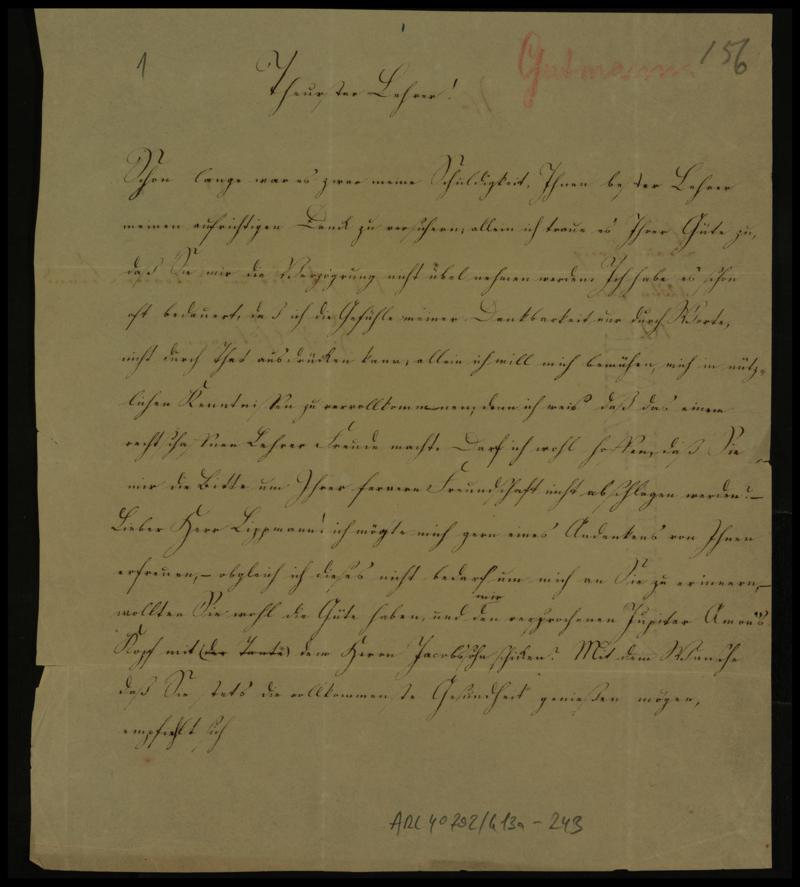 1
Gutmann 156
Theurster Lehrer!
Schon lange war es zwar meine Schuldigkeit, Ihnen bester Lehrer
meinen aufrichtigen Dank zu versichern, allein ich traue es Ihrer Güte zu,
daß Sie mir die Verzögrung nicht übel nehmen werden. Ich habe es schon
oft bedauert, daß ich die Gefühle meiner Dankbarkeit nur durch Worte,
nicht durch That ausdrücken kann, allein ich will mich bemühen, mich in nütz-
lichen Kenntnissen zu vervollkommnen, denn ich weis daß das einem
rechtschaffnen Lehrer Freude macht. Darf ich wohl hoffen, daß Sie
mir die Bitte um Ihrer fernern Freundschaft nicht abschlagen werden? —
Lieber Herr Lippmann! ich mögte mich gern eines Andenkens von Ihnen
erfreuen, — obgleich ich dieses nicht bedarf um mich an Sie zu erinnern, —
wollten Sie wohl die Güte haben, und mir den versprochenen Jupiter Amon's
Kopf mit (der Tante) dem Herrn Jacobssohn schicken? Mit dem Wunsche
daß Sie stets die vollkommenste Gesundheit genießen mögen,
empfiehlt sich
ARC 4o 792/G13a - 243